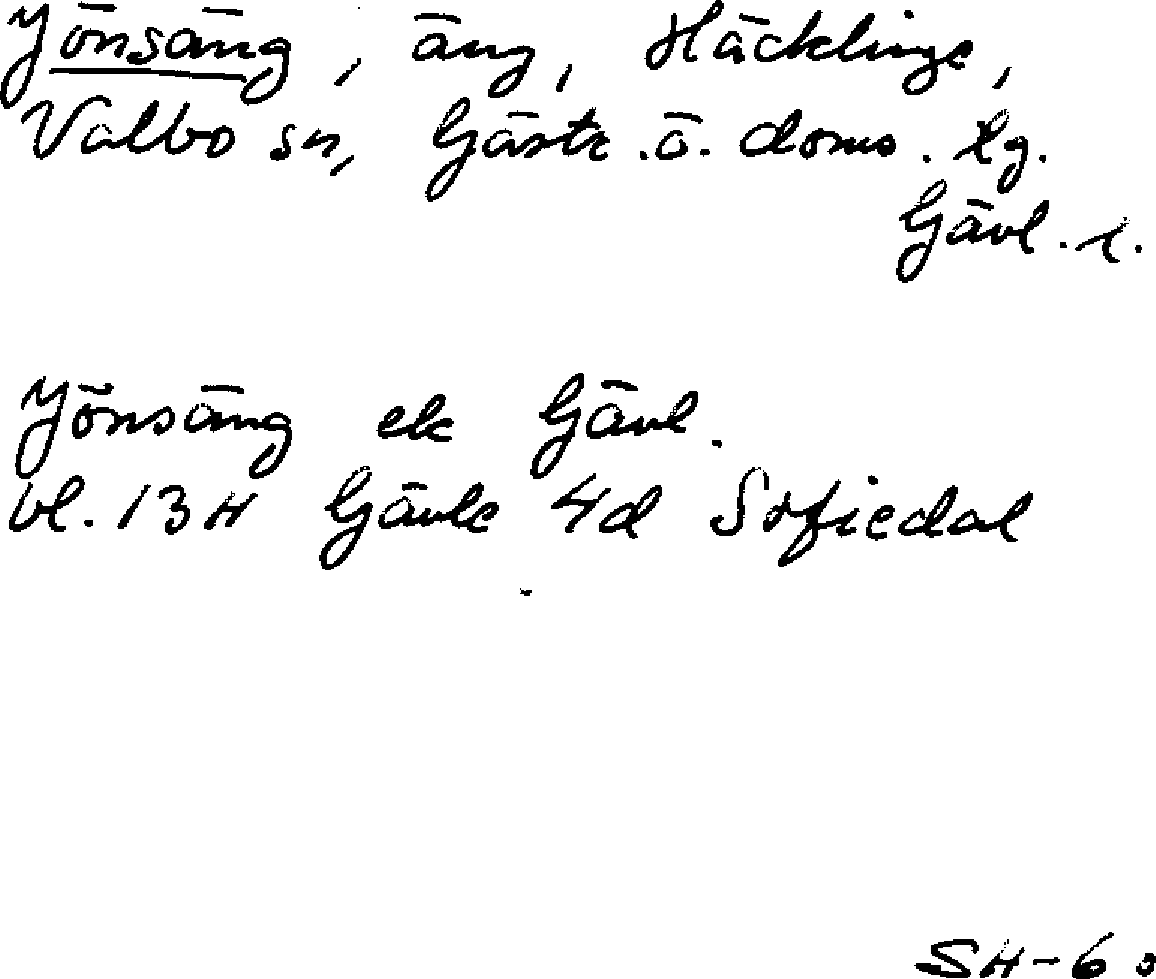 Jönsäng, äng, Häcklinge,
Valbo sn, Gästr. ö. doms. lg.
Gävl. l.
Jönsäng ek Gävl.
bl. 13H Gävle 4d Sofiedal
SH-60